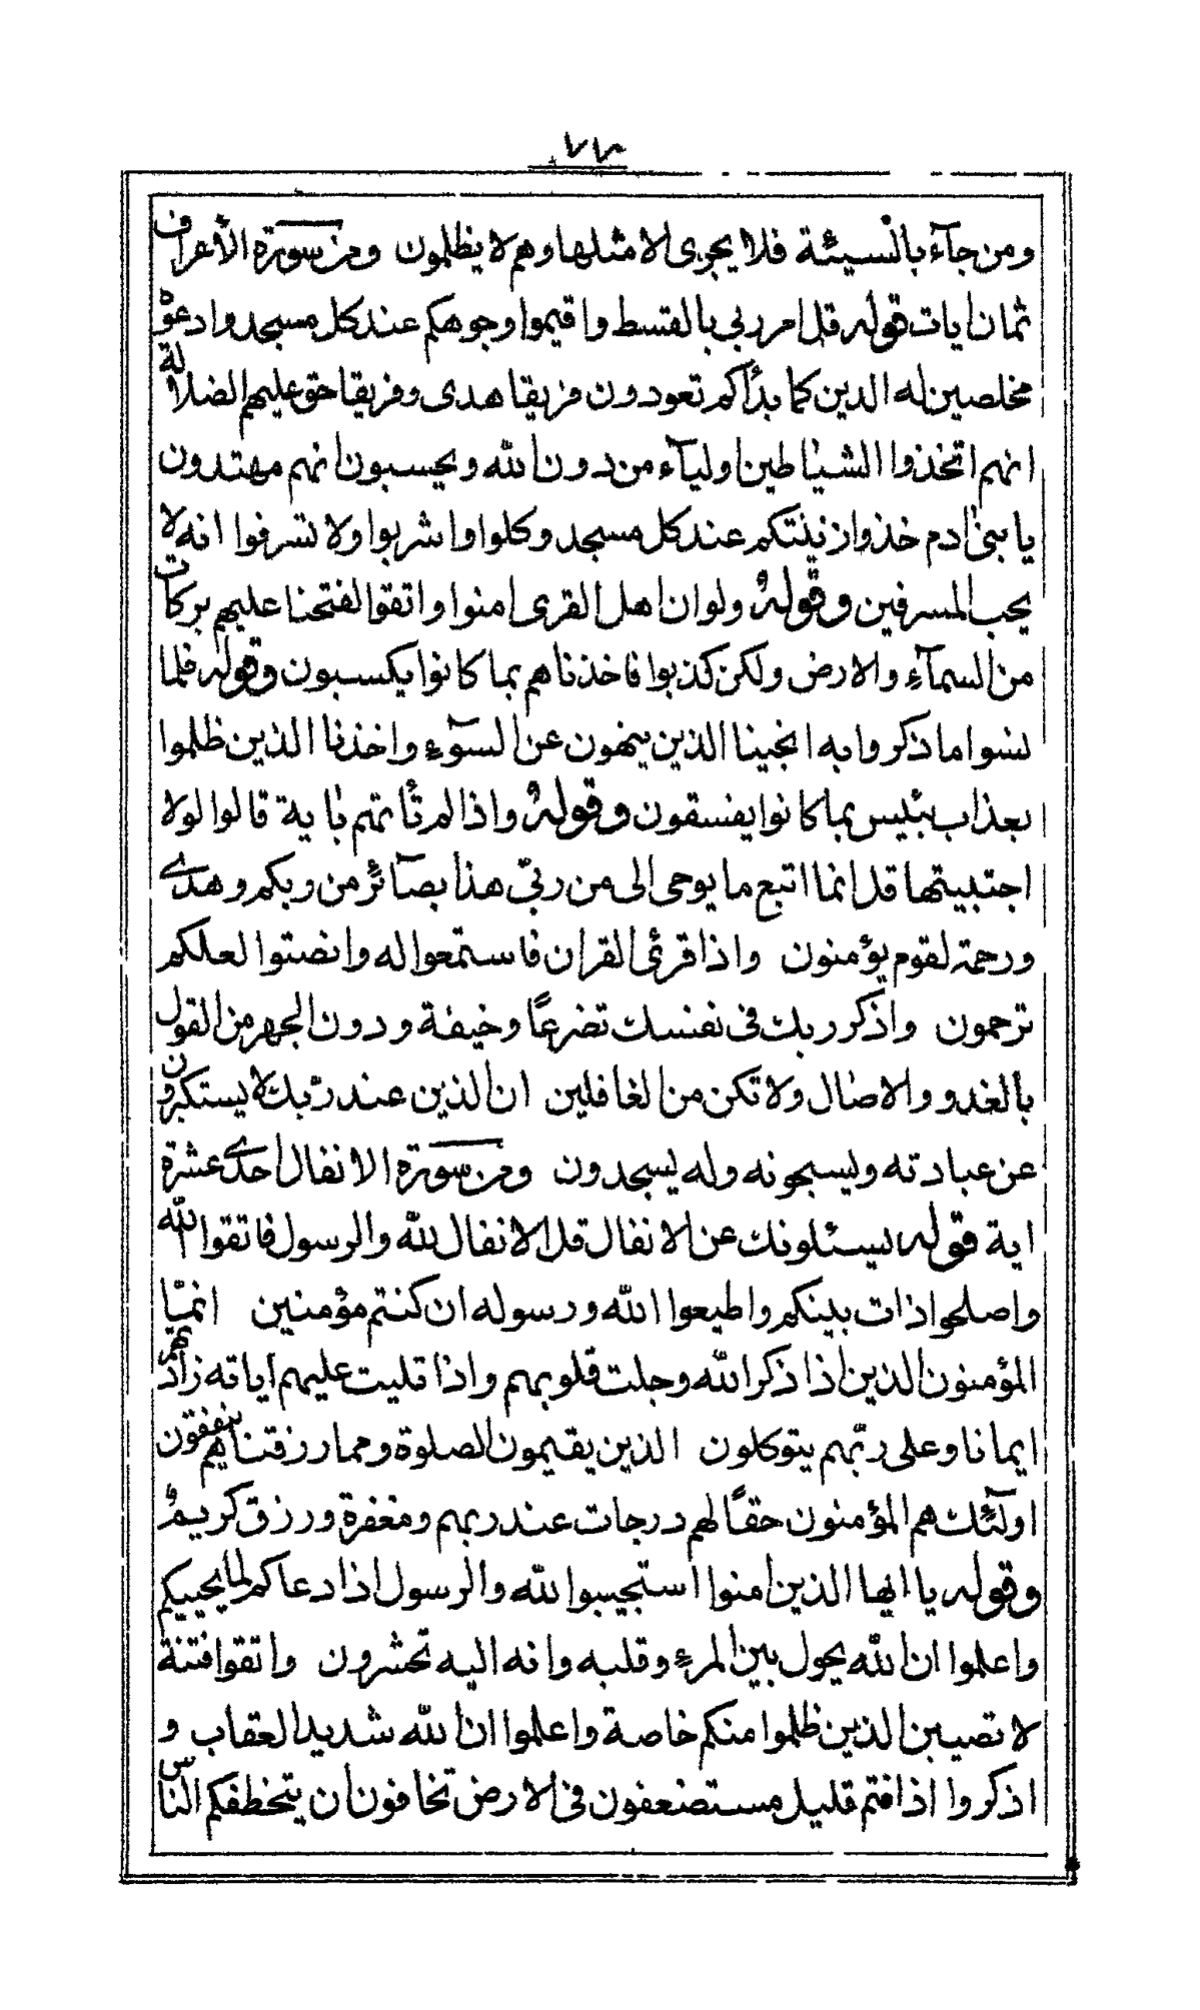 ٧٣
ومن جآء بالسيئة فلا يجرى الا مثلها وهم لا يظلمون ومن سورة الأعراف
ثمان ايات قوله قل امر ربي بالقسط واقيموا وجوهكم عند كل مسجد وادعوه
مخلصين له الدين كما بدأكم تعودون فريقا هدى وفريقا حق عليهم الضلالة
انهم اتخذوا الشياطين اوليآء من دون الله ويحسبون انهم مهتدون
يا بنى ادم خذوا زينتكم عند كل مسجد وكلوا واشربوا ولا تسرفوا انه لا
يحب المسرفين وقوله ولو ان اهل القرى امنوا واتقوا لفتحنا عليهم بركات
من السمآء والارض ولكن كذبوا فاخذناهم بما كانوا يكسبون وقوله فلما
نسوا ما ذكروا به انجينا الذين ينهون عن السوٓء واخذنا الذين ظلموا
بعذاب بئيس بما كانوا يفسقون وقوله واذا لم تأتهم باية قالوا لولا
اجتبيتها قل انما اتبع ما يوحى الى من ربى هذا بصآئر من ربكم وهدى
ورحمة لقوم يؤمنون واذا قرئ القران فاستمعوا له وانصتوا لعلكم
ترحمون واذكر ربك فى نفسك تضرعًا وخيفة ودون الجهر من القول
بالغدو والاصال ولا تكن من الغافلين ان الذين عند ربك لا يستكبرون
عن عبادته ويسبحونه وله يسجدون ومن سورة الانفال احدى عشرة
اية قوله يسئلونك عن الانفال قل الانفال لله والرسول فاتقوا الله
واصلحوا ذات بينكم واطيعوا الله ورسوله ان كنتم مؤمنين انما
المؤمنون الذين اذا ذكر الله وجلت قلوبهم واذا تليت عليهم اياته زادتهم
ايمانا وعلى ربهم يتوكلون الذين يقيمون الصلوة ومما رزقناهم ينفقون
اولٓئك هم المؤمنون حقًا لهم درجات عند ربهم ومغفرة ورزق كريم
وقوله يا ايها الذين امنوا استجيبوا لله والرسول اذا دعاكم لما يحييكم
واعلموا ان الله يحول بين المرء وقلبه وانه اليه تحشرون واتقوا فتنة
لا تصيبن الذين ظلموا منكم خاصة واعلموا ان الله شديد العقاب و
اذكروا اذ انتم قليل مستضعفون فى الارض تخافون ان يتخطفكم الناس